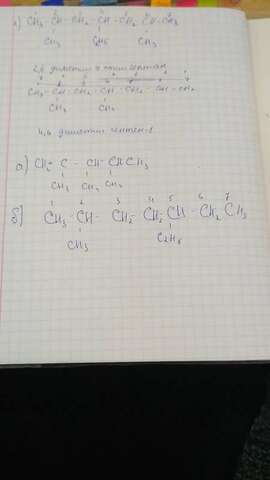 CH3 - CH - CH2 - CH - CH2 - CH - CH3
CH3 C2H5 CH3
2,6 диметил 4 этилгептан
CH3 - CH - CH2 - CH - CH2 - CH = CH2
CH3 CH3
4,6 диметил гептен-1
а) C - CH - CH CH3
CH3 CH3 CH3
б) 1 2 3 4 5 6 7
CH3 - CH - CH2 - CH2 - CH - CH2 - CH3
CH3 C2H5